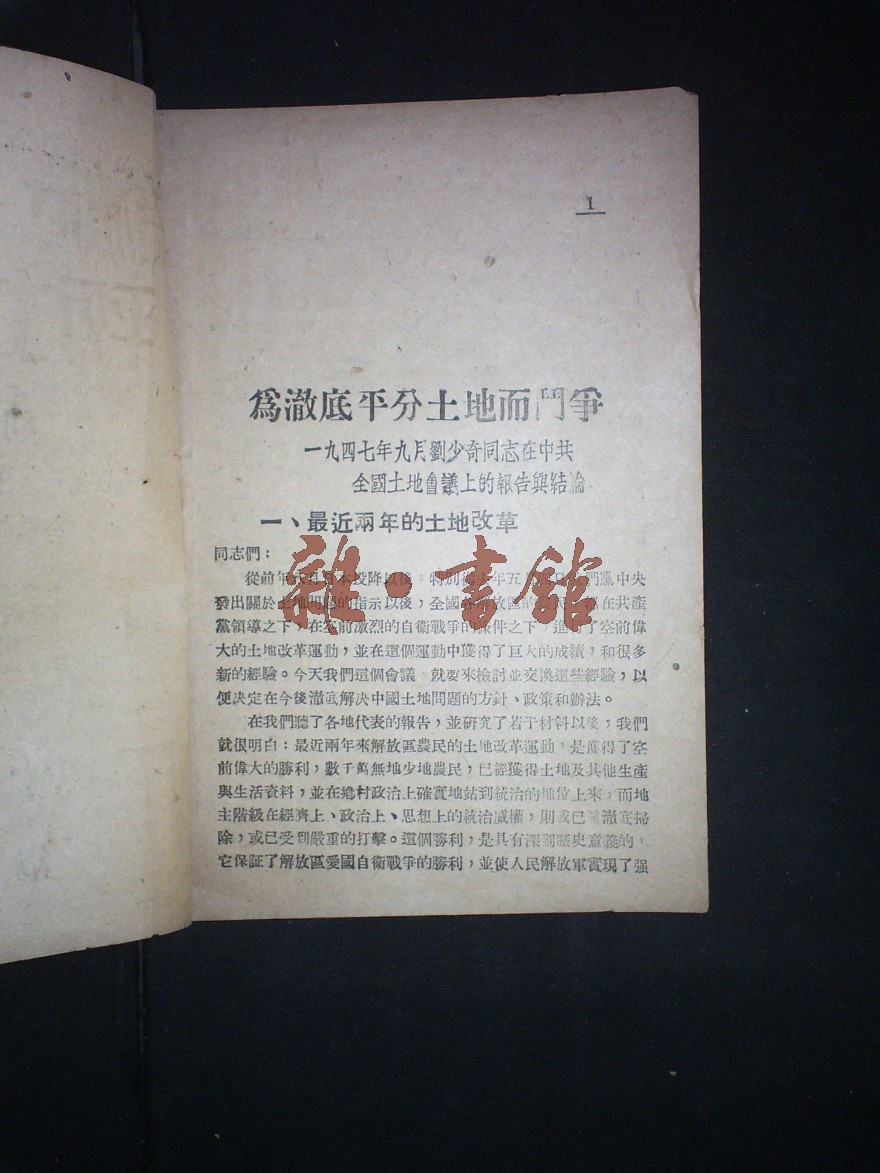 1
爲澈底平分土地而鬥爭
一九四七年九月劉少奇同志在中共
全國土地會議上的報告與結論
一、最近兩年的土地改革
同志們：
從前年八月日本投降以後，特別從去年五月四日我們黨中央
發出關於土地問題的指示以後，全國各解放區的農民，都在共產
黨領導之下，在空前激烈的自衞戰爭的條件之下，進行了空前偉
大的土地改革運動，並在這個運動中獲得了巨大的成績，和很多
新的經驗。今天我們這個會議，就要來檢討並交換這些經驗，以
便決定在今後澈底解決中國土地問題的方針、政策和辦法。
在我們聽了各地代表的報告，並研究了若干材料以後，我們
就很明白：最近兩年來解放區農民的土地改革運動，是獲得了空
前偉大的勝利，數千萬無地少地農民，已經獲得土地及其他生產
與生活資料，並在鄉村政治上確實地站到統治的地位上來，而地
主階級在經濟上、政治上、思想上的統治威權，則或已被澈底掃
除，或已受到嚴重的打擊。這個勝利，是具有深刻歷史意義的，
它保証了解放區愛國自衞戰爭的勝利，並使人民解放軍實現了强
雜·書館